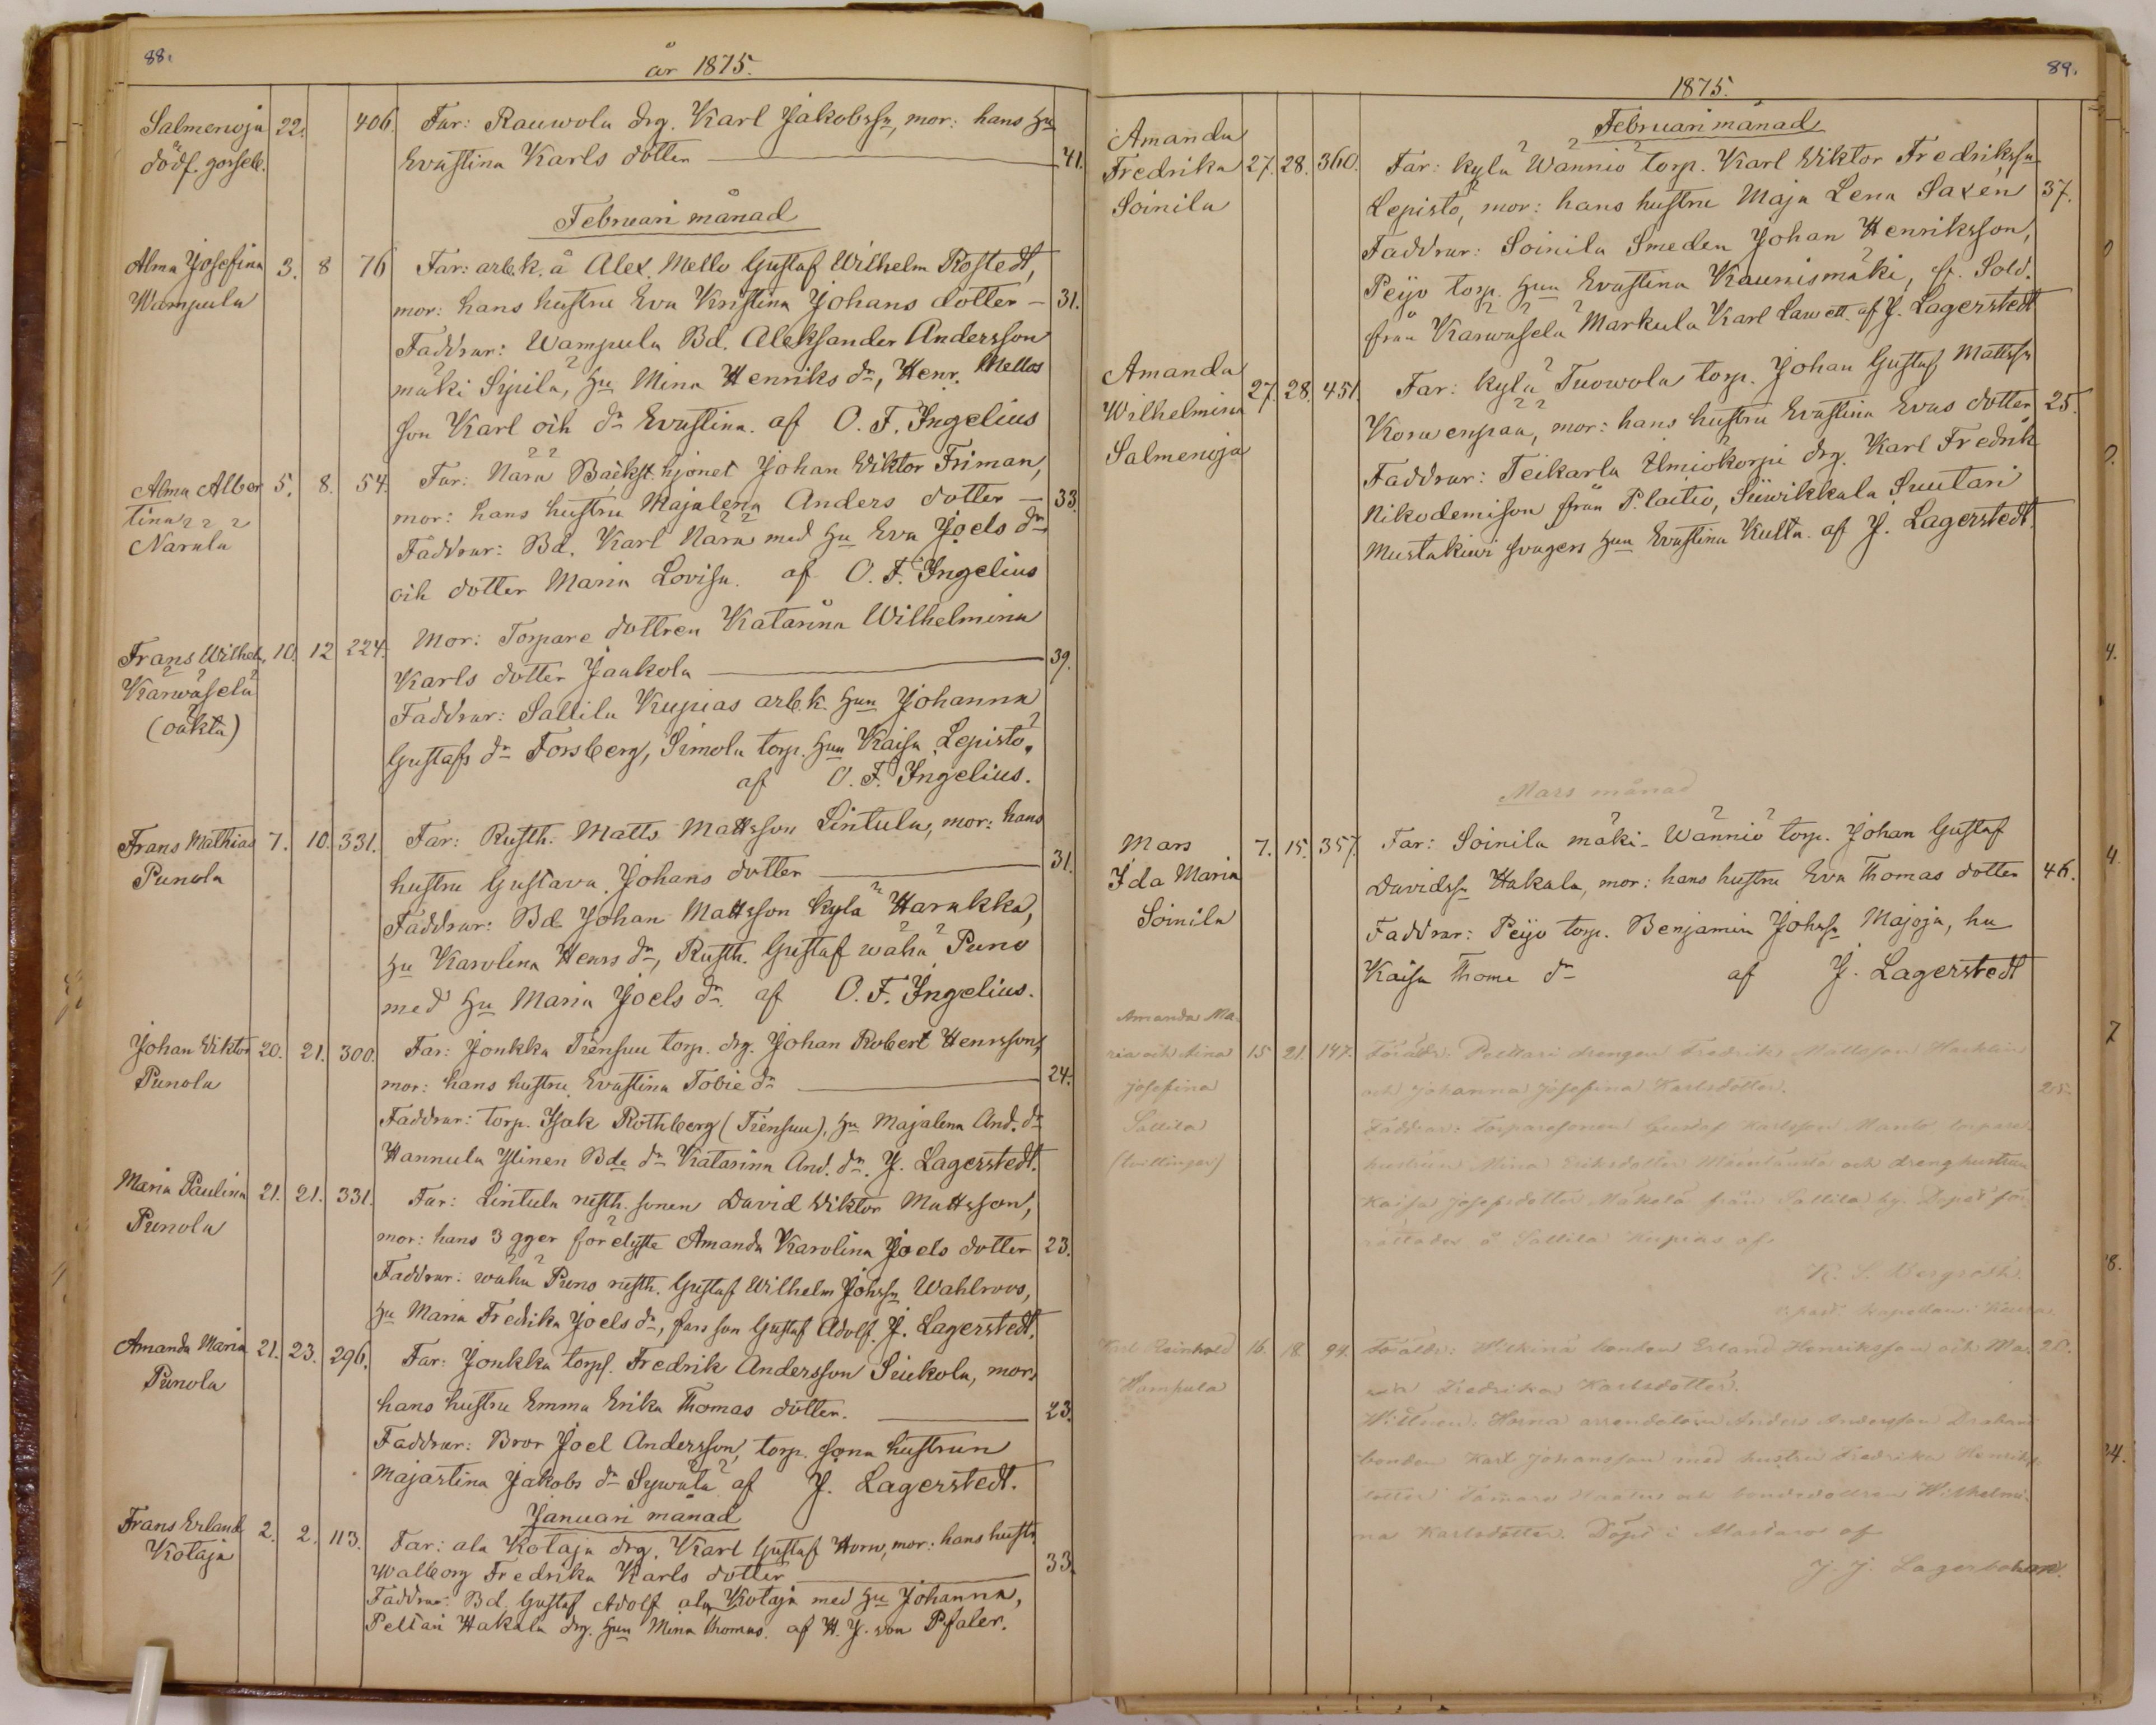 88.
år 1875.
Salmenoja 22. 406. Far: Rauwola drg. Karl Jakobsn, mor: hans hu
dödf. gosseb. Evastina Karls dotter 41.
Februari månad
Alma Josefina 3. 8 76 Far: arb.k. å Alex. Mello Gustaf Wilhelm Rostedt,
Wampula mor: hans hustru Eva Kristina Johans dotter 31.
Faddrar: Wampula Bd. Aleksander Andersson
mäki Sipilä, hu Mina Henriks dr, Henr. Mellos
son Karl och dr Evastina. af O. F. Ingelius
Alma Alber 5. 8. 54. Far: Närä Backst. hjonet Johan Wiktor Friman,
tina mor: hans hustru Majalena Anders dotter 33.
Narala Faddrar: Bd. Karl Närä med hu Eva Joels dr
och dotter Maria Lovisa. af O. F. Ingelius
Frans Wilhel. 10. 12 224. Mor: Torpare dottren Katarina Wilhelmina
Karwaselä Karls dotter Jaakola 39.
(oäkta) Faddrar: Sallila Kupias arb.k. hun Johanna
Gustafs dr Forsberg, Simola torp. hun Kaisa Lepistö.
af O. F. Ingelius.
Frans Mathias 7. 10. 331. Far: Rusth. Matts Mattsson Lintula, mor: hans
Punola hustru Gustava Johans dotter 31.
Faddrar: Bd Johan Mattsson Kylä Harakka,
hu Karolina Henrs dr, Rusth. Gustaf wähä Puno
med hu Maria Joels dr. af O. F. Ingelius.
Johan Wiktor 20. 21. 300. Far: Jonkka Tiensuu torp. drg. Johan Robert Henrsson,
Punola mor: hans hustru Evastina Tobie dr 24.
Faddrar: torp. Isak Rothberg (Tiensuu), hu Majalena And. dr
Hannula Ylinen Bde dr Katarina And. dr. J. Lagerstedt.
Maria Paulina 21. 21. 331. Far: Lintula rusth. sonen David Wiktor Mattsson,
Punola mor: hans 3 gger förelyste Amanda Karolina Joels dotter 23.
Faddrar: wähä Puno rusth. Gustaf Wilhelm Johssn Wahlroos,
hu Maria Fredika Joels dr, fars son Gustaf Adolf. J. Lagerstedt.
Amanda Maria 21. 23. 296. Far: Jonkka torps. Fredrik Andersson Siukola, mor:
Punola hans hustru Emma Erika Thomas dotter. 23.
Faddrar: Bror Joel Andersson, torp. sona hustrun
Majastina Jakobs dr Sywälä af J. Lagerstedt.
Januari månad
Frans Erland 2. 2. 113. Far: ala Kotaja drg. Karl Gustaf Horn, mor: hans hustr.
Kotaja Walborg Fredrika Karls dotter 33.
Faddrar: Bd. Gustaf Adolf ala Kotaja med hu Johanna,
Peltari Hakala drg. hun Mina Thomas. af H. J. von Pfaler.
89.
1875.
Februari månad
Amanda
Fredrika 27. 28. 360. Far: kylä Wänniö torp. Karl Wiktor Fredrikssn
Soinila Lepistö, mor: hans hustru Maja Lena Saxen 37.
Faddrar: Soinila Smeden Johan Henriksson,
Peijo torp. hun Evastina Kaunismäki, f. Sold.
från Karwaselä Markula Karl Lawett. af J. Lagerstedt
Amanda
Wilhelmina 27. 28. 451. Far: kylä Tuowola torp. Johan Gustaf Mattssn
Salmenoja Korwenpää, mor: hans hustru Evastina Evas dotter 25.
Faddrar: Teikarla Ilmiokorpi drg. Karl Fredrik
Nikodemison från P. laitio, Siiwikkala Suutari
Mustakiwi svagers hun Evastina Kulta. af J. Lagerstedt.
Mars månad
Mars 7. 15. 357. Far: Soinila mäki-Wänniö torp. Johan Gustaf
Ida Maria Davidssn Hakala, mor: hans hustru Eva Thomas dotter 46.
Soinila Faddrar: Peijo torp. Benjamin Johssn Majoja, hu
Kaisa Thome dr af J. Lagerstedt
Amanda Ma-
ria och Aina 15 21. 147. Föräldr: Peltari drengen Fredrik Mattsson
Josefina och Johanna Josefina Karlsdotter. 25.
Sallila Faddrar: torparesonen Gustaf Karlsson torpare
(tvillingar) hustrun Mina Eriksdotter och dreng hustrun
Kaisa Josefsdotter Mäkelä från Sallila by. Dopet för-
rättades å Sallila Kupias af
K. S. Bergroth
Karl Reinhold 16. 18. 94. Föräldr: bonden Erland Henriksson och Ma- 28.
Wampula ria Fredrika Karlsdotter.
Wittnen: Horna arrendatorn Anders Andersson
bonden Karl Johansson med hustru Fredrika Henriks
dotter och bondedottren Wilhelmi-
na Karlsdotter. Döpt i af
J. J.